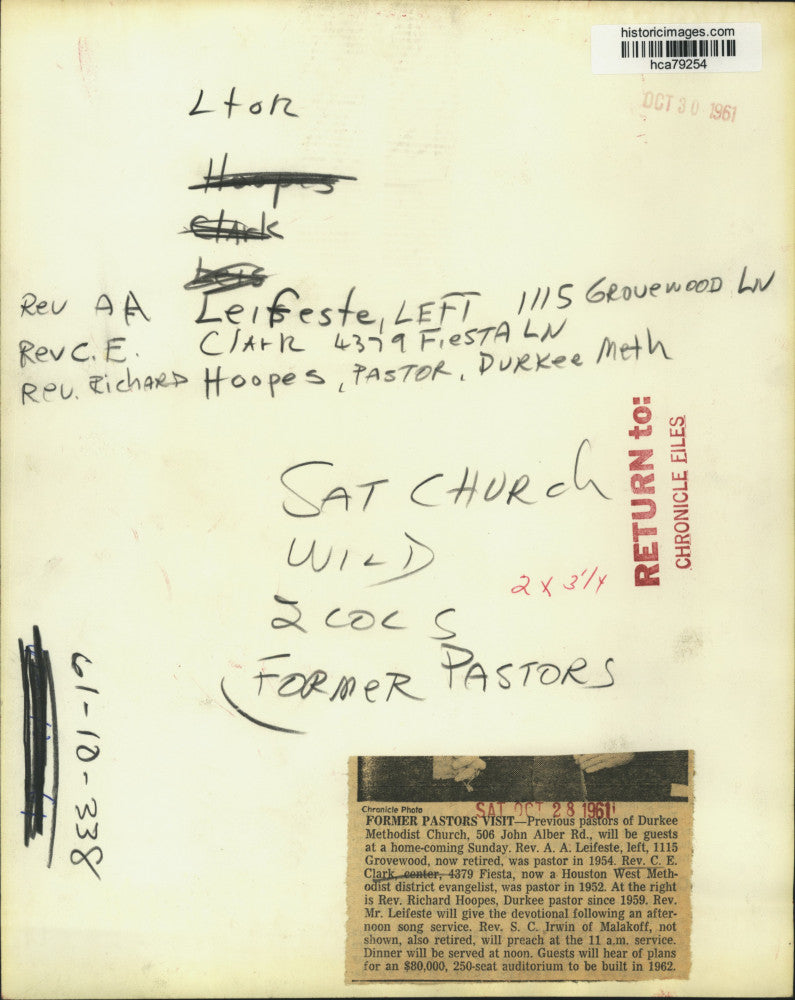 historicimages.com
hca79254
OCT 30 1961
L to R
Hoopes
Clark
Rev AA Leifeste, LEFT 1115 GROVEWOOD LN
Rev C. E. Clark 4379 FiESTA LN
Rev. Richard Hoopes, PASTOR, Durkee Meth
RETURN to:
CHRONICLE FILES
SAT CHURCh
WILD
2 x 3 1/4
2 COLS
FORMER PASTORS
61-10-338
Chronicle Photo
SAT OCT 28 1961
FORMER PASTORS VISIT—Previous pastors of Durkee
Methodist Church, 506 John Alber Rd., will be guests
at a home-coming Sunday. Rev. A. A. Leifeste, left, 1115
Grovewood, now retired, was pastor in 1954. Rev. C. E.
Clark, center, 4379 Fiesta, now a Houston West Meth-
odist district evangelist, was pastor in 1952. At the right
is Rev. Richard Hoopes, Durkee pastor since 1959. Rev.
Mr. Leifeste will give the devotional following an after-
noon song service. Rev. S. C. Irwin of Malakoff, not
shown, also retired, will preach at the 11 a.m. service.
Dinner will be served at noon. Guests will hear of plans
for an $80,000, 250-seat auditorium to be built in 1962.